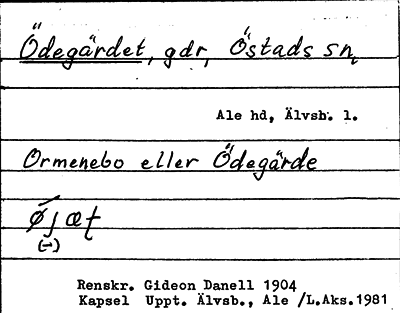 Ödegärdet, gdr, Östads sn,
Ale hd, Älvsb. l.
Ormenebo eller Ödegärde
ǿjæt
(-)
Renskr. Gideon Danell 1904
Kapsel Uppt. Älvsb., Ale /L.Aks.1981